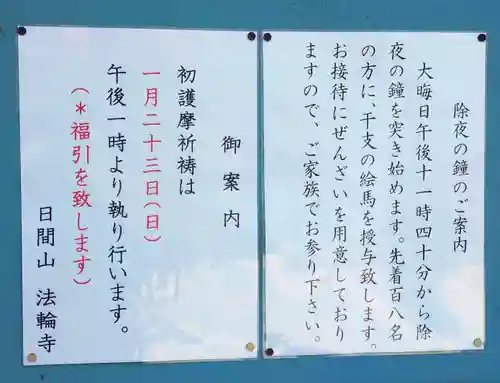 除夜の鐘のご案内
大晦日午後十一時四十分から除
夜の鐘を突き始めます。先着百八名
の方に、干支の絵馬を授与致します。
お接待にぜんざいを用意しており
ますので、ご家族でお参り下さい。
御案内
初護摩祈祷は
一月二十三日(日)
午後一時より執り行います。
(*福引を致します)
日間山 法輪寺